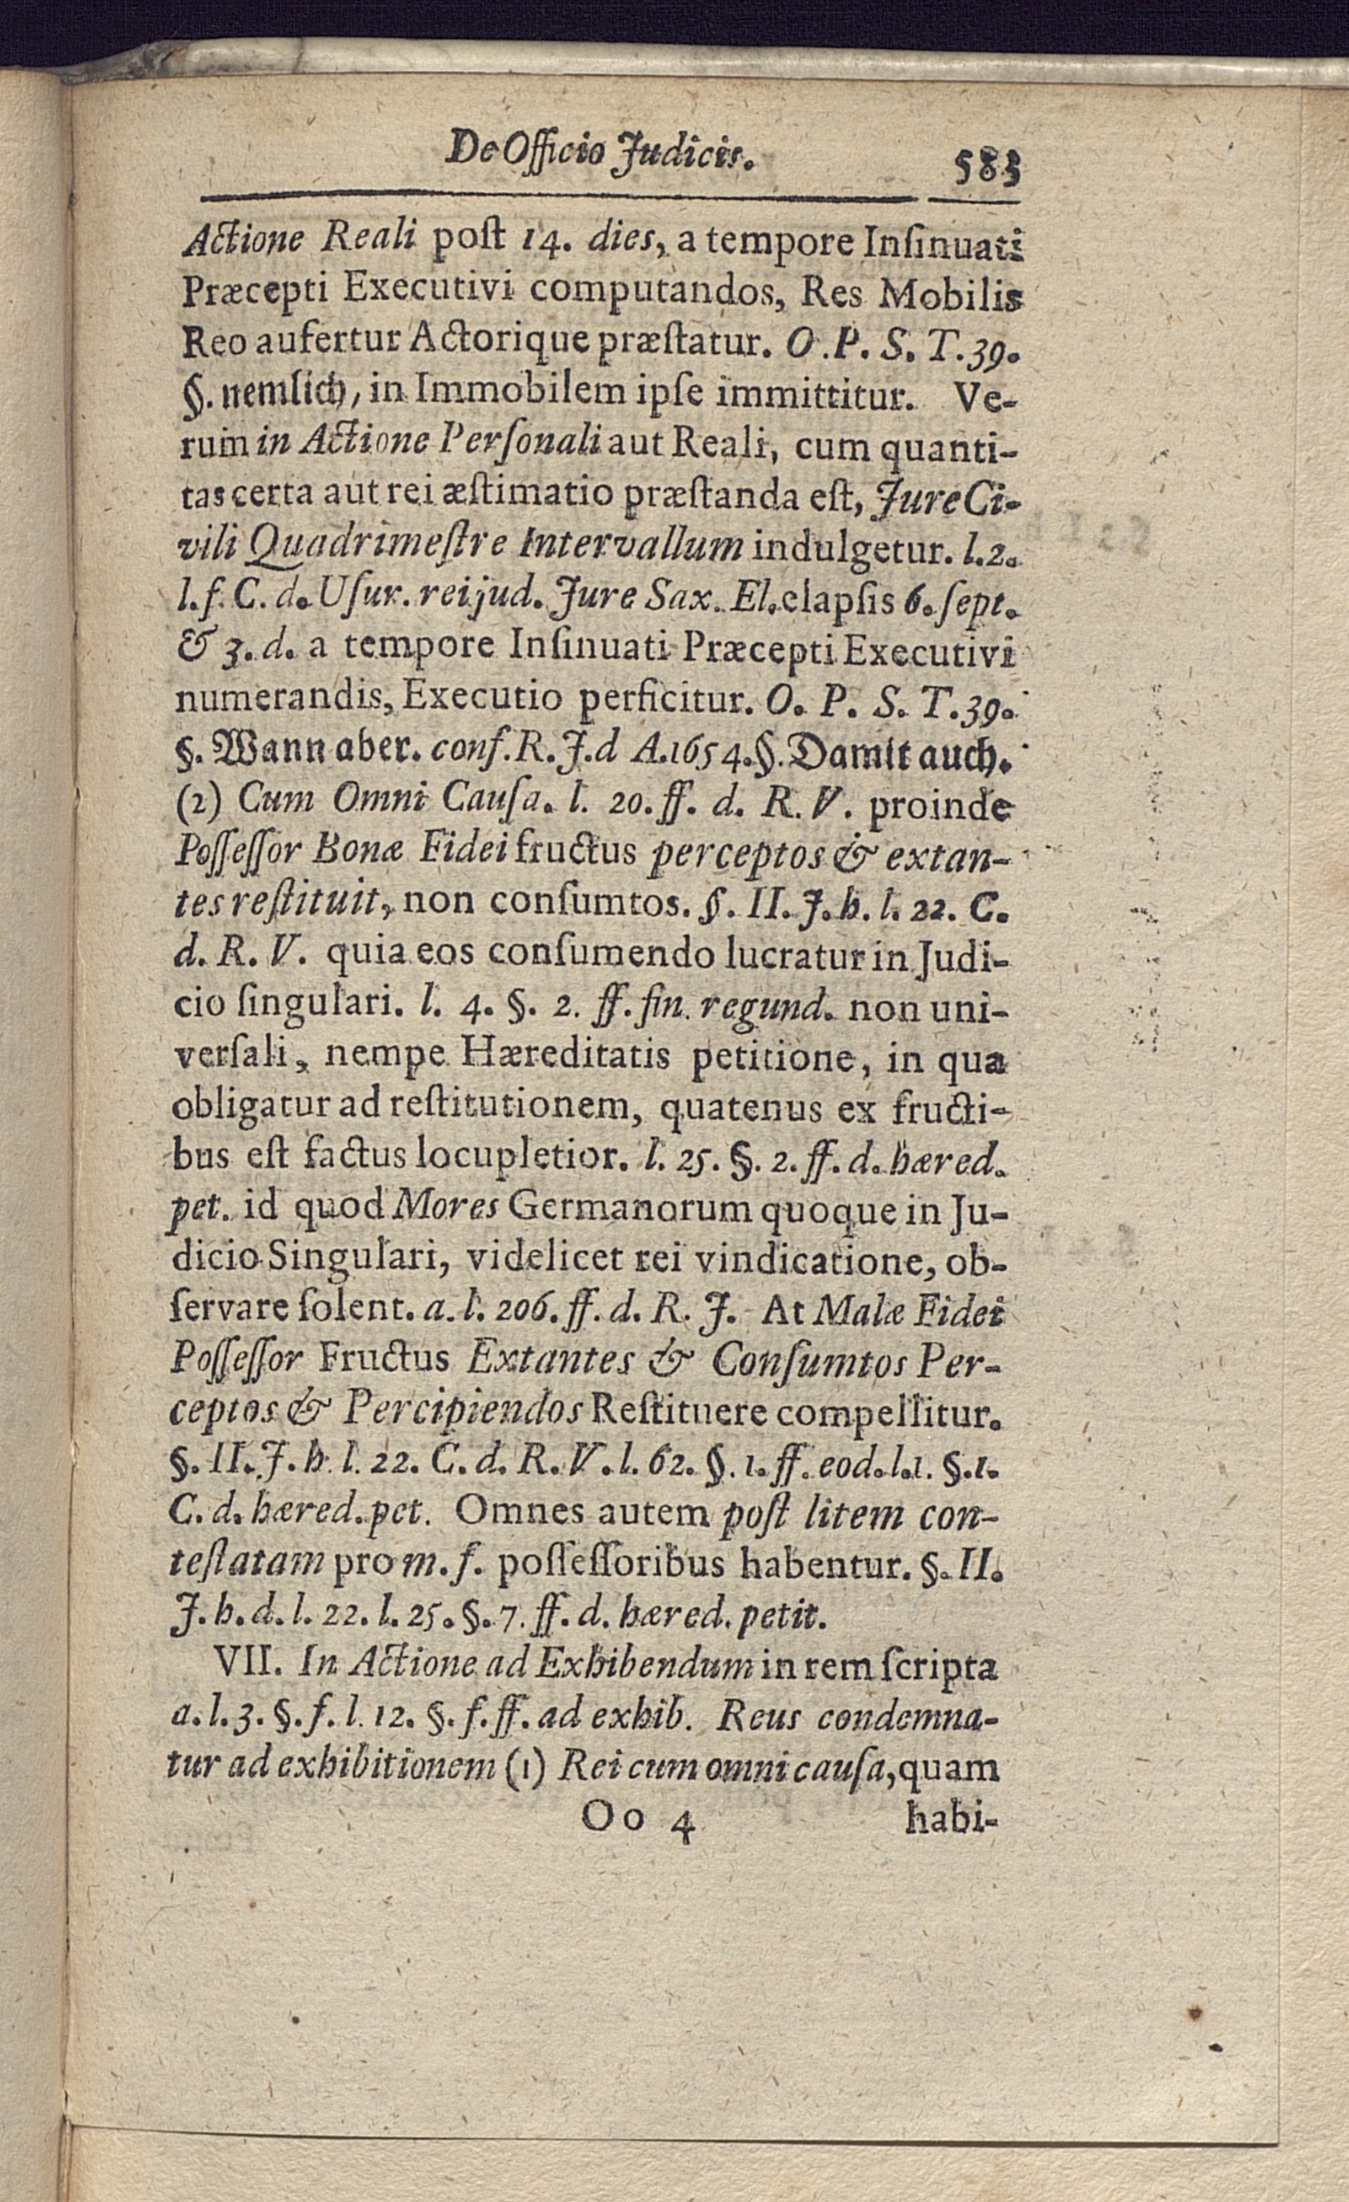 De Officio Judicis. 583
Actione Reali poſt 14. dies, a tempore Inſinuati
Præcepti Executivi computandos, Res Mobilis
Reo aufertur Actorique præſtatur. O. P. S. T. 39.
§. nemlich, in Immobilem ipſe immittitur. Ve-
rum in Actione Perſonali aut Reali, cum quanti-
tas certa aut rei æſtimatio præſtanda eſt, Jure Ci-
vili Quadrimeſtre Intervallum indulgetur. l. 2.
l. f. C. d. Uſur. rei jud. Jure Sax. El. elapſis 6. ſept.
& 3. d. a tempore Inſinuati Præcepti Executivi
numerandis, Executio perficitur. O. P. S. T. 39.
§. Wann aber. conf. R. J. d A. 1654. §. Damit auch.
(2) Cum Omni Cauſa. l. 20. ff. d. R. V. proinde
Poſſeſſor Bonæ Fidei fructus perceptos & extan-
tes reſtituit, non conſumtos. §. II. J. h. l. 22. C.
d. R. V. quia eos conſumendo lucratur in Judi-
cio ſingulari. l. 4. §. 2. ff. fin. regund. non uni-
verſali, nempe Hæreditatis petitione, in qua
obligatur ad reſtitutionem, quatenus ex fructi-
bus eſt factus locupletior. l. 25. §. 2. ff. d. hæred.
pet. id quod Mores Germanorum quoque in Ju-
dicio Singulari, videlicet rei vindicatione, ob-
ſervare ſolent. a. l. 206. ff. d. R. J. At Malæ Fidei
Poſſeſſor Fructus Extantes & Conſumtos Per-
ceptos & Percipiendos Reſtituere compellitur.
§. II. J. h. l. 22. C. d. R. V. l. 62. §. 1. ff. eod. l. 1. §. 1.
C. d. hæred. pet. Omnes autem poſt litem con-
teſtatam pro m. f. poſſeſſoribus habentur. §. II.
J. h. d. l. 22. l. 25. §. 7. ff. d. hæred. petit.
VII. In Actione ad Exhibendum in rem ſcripta
a. l. 3. §. f. l. 12. §. f. ff. ad exhib. Reus condemna-
tur ad exhibitionem (1) Rei cum omni cauſa, quam
Oo 4 habi-